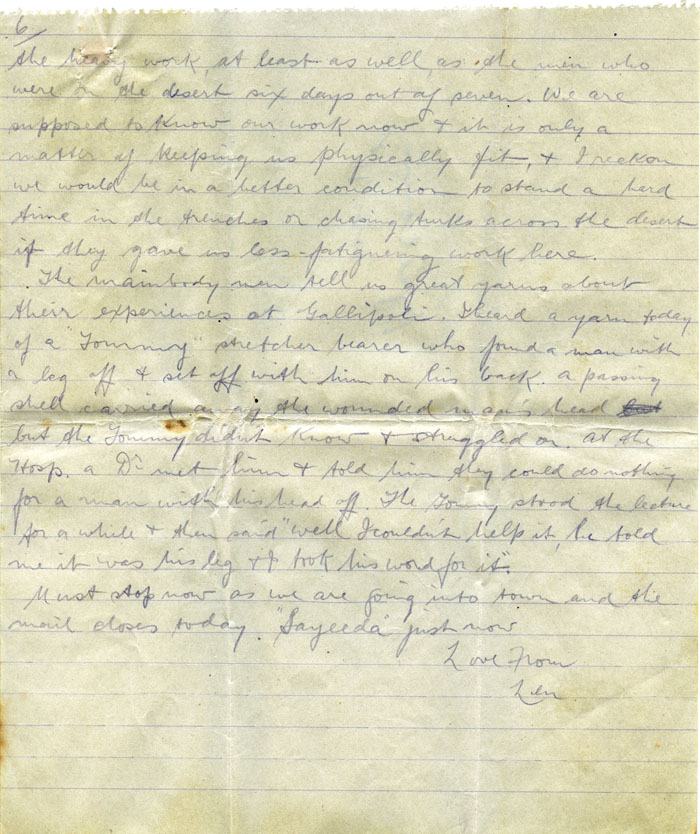 6/
the heavy work, at least as well, as the men who
were in the desert six days out of seven. We are
supposed to know our work now & it is only a
matter of keeping us physically fit, & I reckon
we would be in a better condition to stand a hard
time in the trenches or chasing turks across the desert
if they gave us less fatigueing work here.
The mainbody men tell us great yarns about
their experiences at Gallipoli. I heard a yarn today
of a "Tommy" stretcher bearer who found a man with
a leg off & set off with him on his back. a passing
shell carried away the wounded man's head but
but the Tommy didn't know & struggled on. At the
Hosp. a Dr met him & told him they could do nothing
for a man with his head off. The Tommy stood the lecture
for a while & then said "well I couldn't help it, he told
me it was his leg & I took his word for it".
Must stop now as we are going into town and the
mail closes today. "Sayeeda" just now
Love From
Len